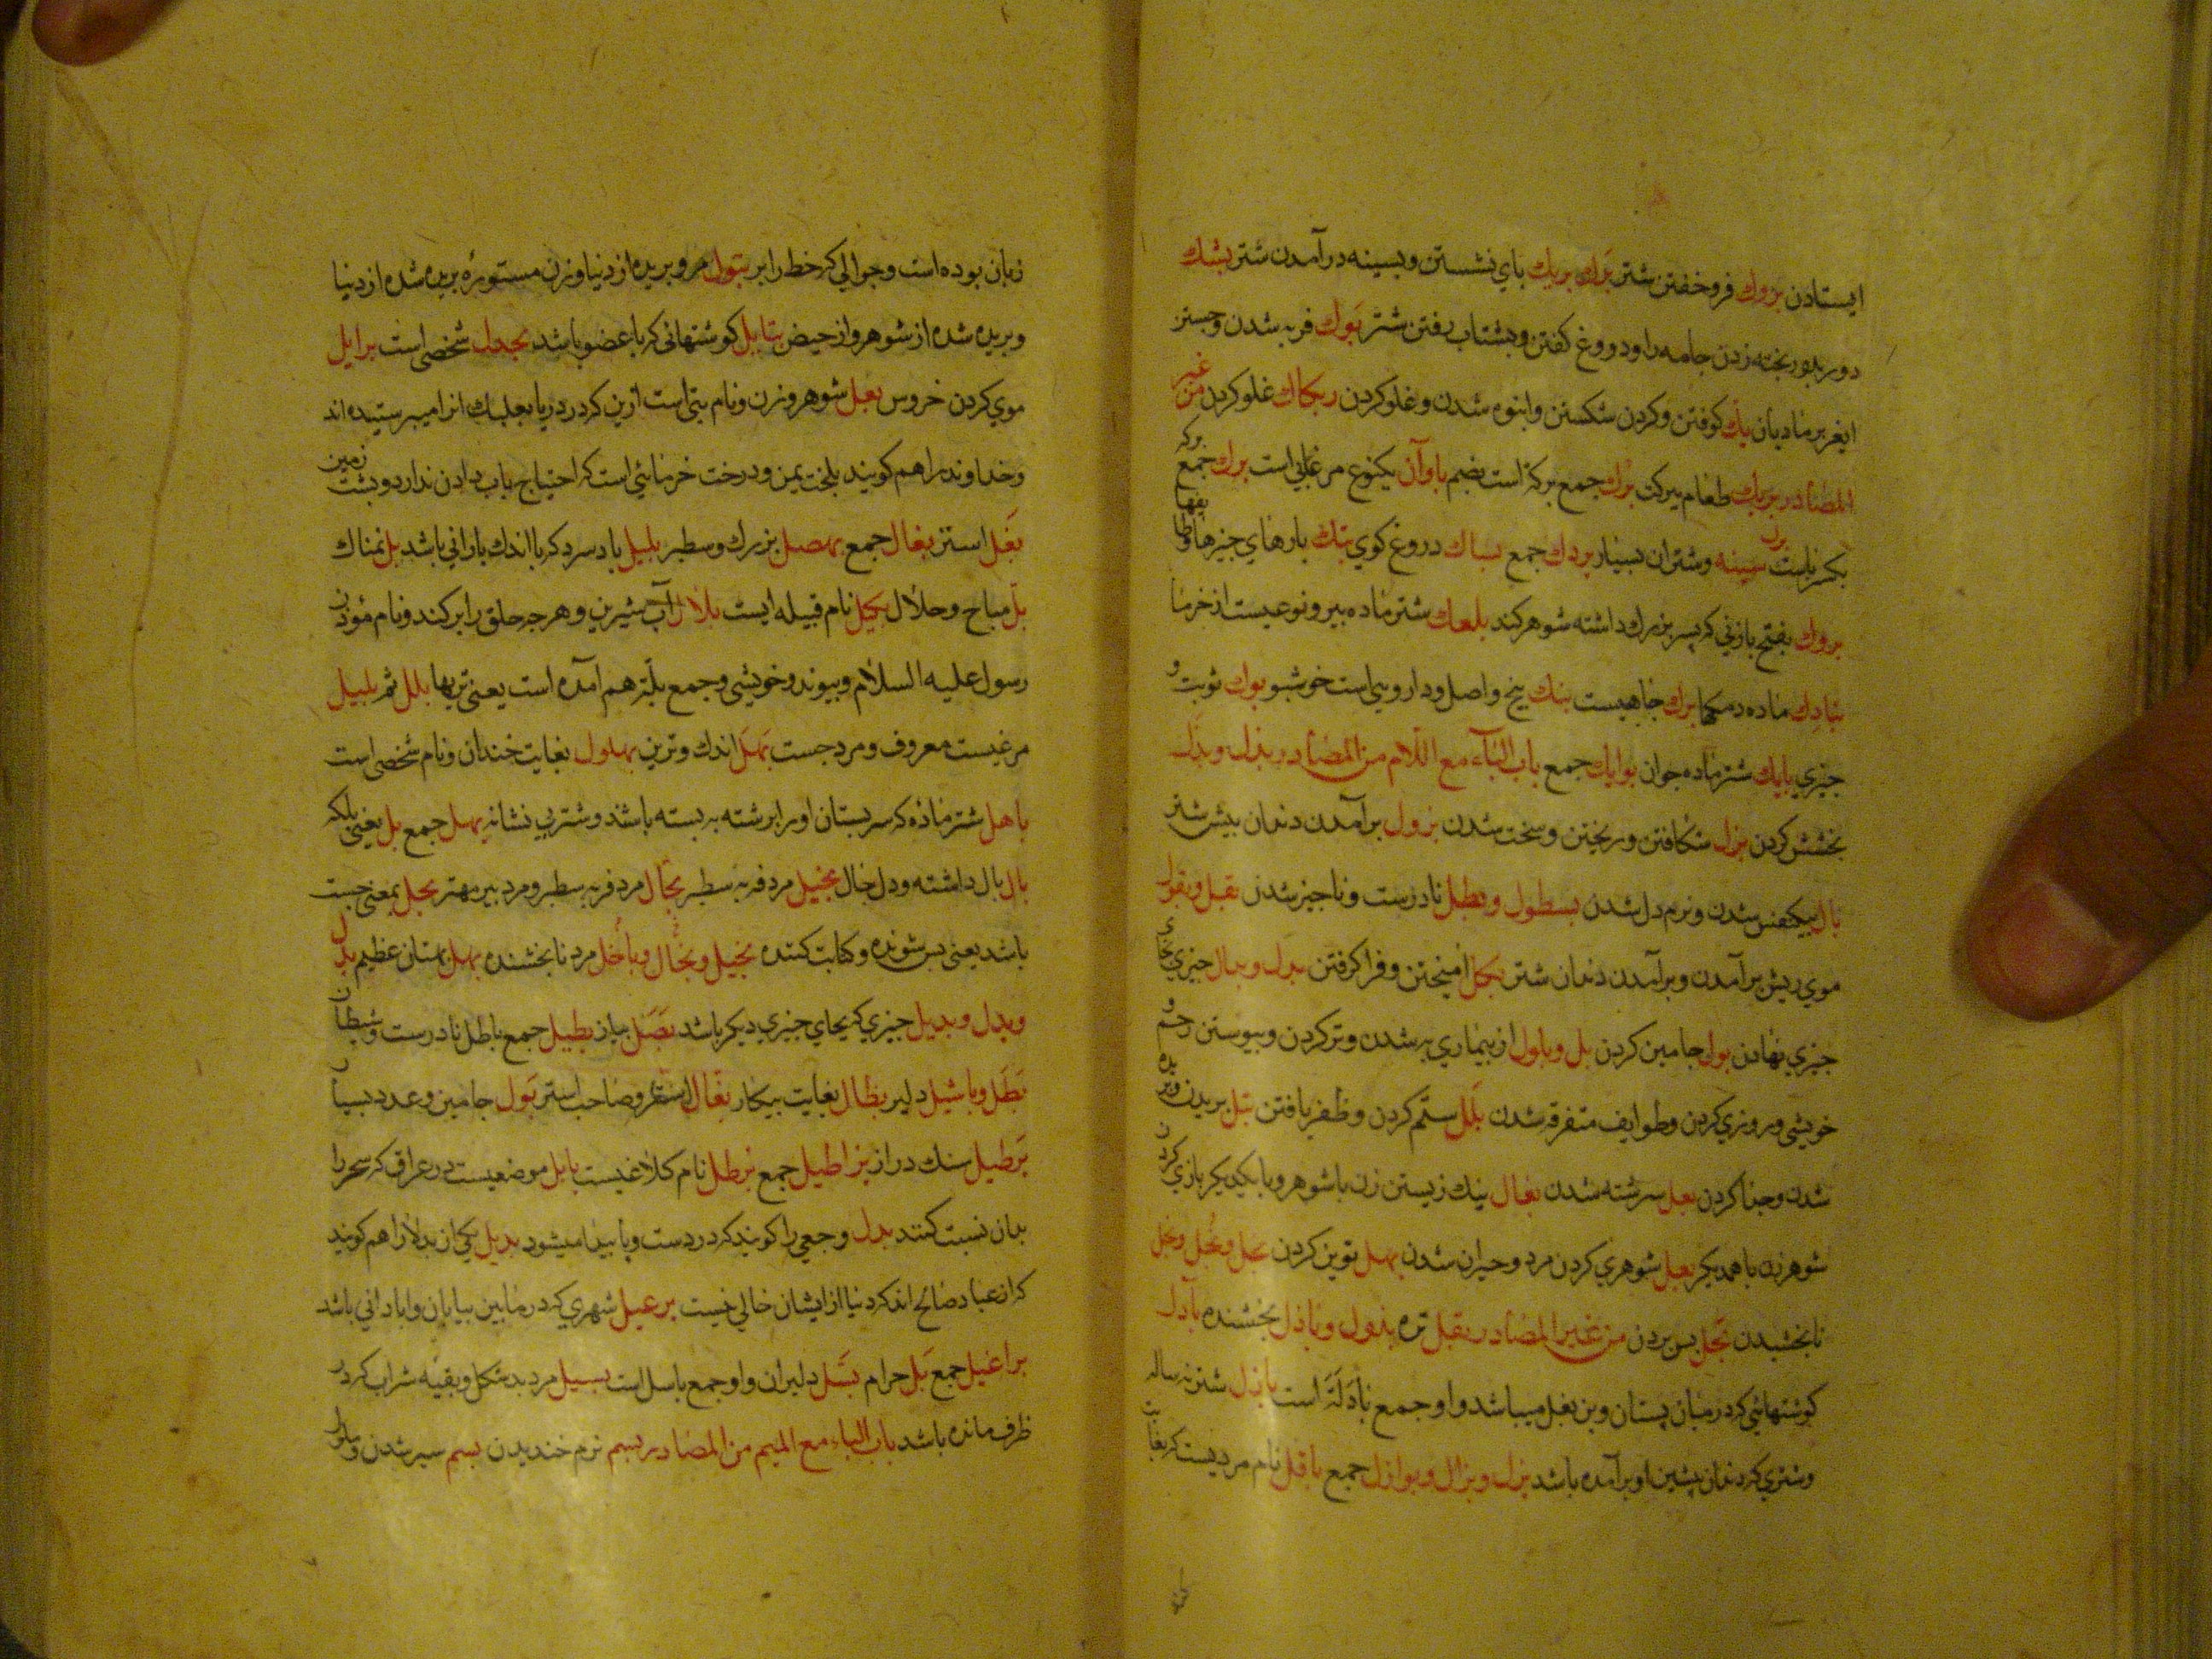 ایستادن بروك فروخفتن شتر برك بریك بای نشستن و بسینه درآمدن شتر بشك
دور بدور بخته زدن جامه را و دروغ کفتن و بشتاب رفتن شتر بوك فربه شدن و جستن
ایغر بر مادیان بك کوفتن و کردن شکستن و انبوه شدن و غلو کردن ربکاك غلو کردن من غیر
المصادر بریك طعام ببرکت برك جمع برکة است بضم با و آن یکنوع مرغابی است برك جمع برکه
بکسر باست برك سینه و شتران بسیار بردك جمع بساك دروغ کوی بتك بارهای چیزها و
بروك بفتح با زنی که پسر بزرك داشته شوهر کند بلعك شتر ماده پیر و نوعیست از خرما
بنادك ماده دمکها برك جاهیست بنك بیخ و اصل و داروییاست خوشبو بوك نوبت و
جیزی بایك شتر ماده جوان بوایك جمع باب الباء مع اللام من المصادر بذل و بذل
بخشش کردن بزل شکافتن و ریختن و سخت شدن بزول برآمدن دندان بیش شتر
بال بیکفس شدن و نرم دل شدن بسطول و بطل نادرست و ناجیز شدن بقل و بقول
موی ریش برآمدن و برآمدن دندان شتر بکل امیختن و فرا کرفتن بدل و بدال جیزی بجای
جیزی نهادن بول جامین کردن بل و بلول از بیماری به شدن و تر کردن و پیوستن رحم و
خویشی و روزی کردن و طوایف متفرقه شدن بلل ستم کردن و ظفر یافتن بتل بریدن و بریده
شدن و جدا کردن بعل سرشته شدن بعال نیك زیستن زن با شوهر و با یکدیکر بازی کردن
شوهر زن با همدیکر بعل شوهری کردن مرد و حیران شدن بهل نوین کردن بخل و بخل و بخل
نابخشیدن بجل بس بردن من غیر المصادر بقل تره بذول و باذل بخشنده بآدل
کوشتهائی که در میان پستان و بن بغل میباشد و او جمع بادلة است بازل شتر نه ساله
و شتری که دندان پیشین او برآمده باشد بزل و بزال و بوازل جمع باقل نام مردیست که بغایت
زبان بوده است و جوالی که خط را بر بتول مرو بریده از دنیا و زن مستوره بریده شده از دنیا
و بریده شده از شوهر و از حیض بتایل کوشتهائی که با عضو باشد بجدل شخصی است برایل
موی کردن خروس بعل شوهر و زن و نام بتی است ازین که در دریا بعلبك انرا میپرستیده اند
و خداوند را هم کویند بلخت یمن و درخت خرمائی است که احتیاج باب دادن ندارد و بشت زمین
بغل استر بغال جمع بهصل بزرك و سطبر بلیل باد سرد که با اندك بارانی باشد بل نمناك
بل مباح و حلال بجیل نام قبیله ایست بلال آب شیرین و هر چه حلق را بر کند و نام مؤذن
رسول علیه السلام و پیوند و خویشی و جمع بلّة هم آمده است یعنی تریها بلل ثم بلبل
مرغیست معروف و مرد جست بهل اندك و ترین بهلول بغایت خندان و نام شخصی است
باهل شتر ماده که سر بستان او را برشته به بسته باشند و شتر بی نشانه بهل جمع بل یعنی بلکه
بال بال داشته و دل خال بجیل مرد فربه سطبر بجال مرد فربه سطبر و مرد پیر مهتر بجل بمعنی حسبت
باشد یعنی بس شونده و کتابت کننده بخیل و بخال و باخل مرد نابخشنده بهل بهتان عظیم بدل
و بدل و بدیل جیزی که بجای جیزی دیکر باشد بصل بیاز بطیل جمع باطل نادرست و شیطان
بطل و باشیل دلیر بطال بغایت بیکار بغال استر و صاحب استر بول جامین و عدد بسیار
برطیل سنك دراز براطیل جمع برطل نام کلاغیست بابل موضعیست در عراق که سحر را
بدان نسبت کنند بدل وجعی را کویند که در دست و پا پیدا میشود بدیل یکی از بدلا را هم کویند
که از عباد صالح اند که دنیا از ایشان خالی نیست برعیل شهری که در مابین بیابان و ابادانی باشد
براغیل جمع بل حرام بسل دلیران و او جمع باسل است بسیل مرد بد شکل و بقیه شراب که در
ظرف مانده باشد باب الباء مع المیم من المصادر بسم نرم خندیدن بسم سیر شدن و ملول